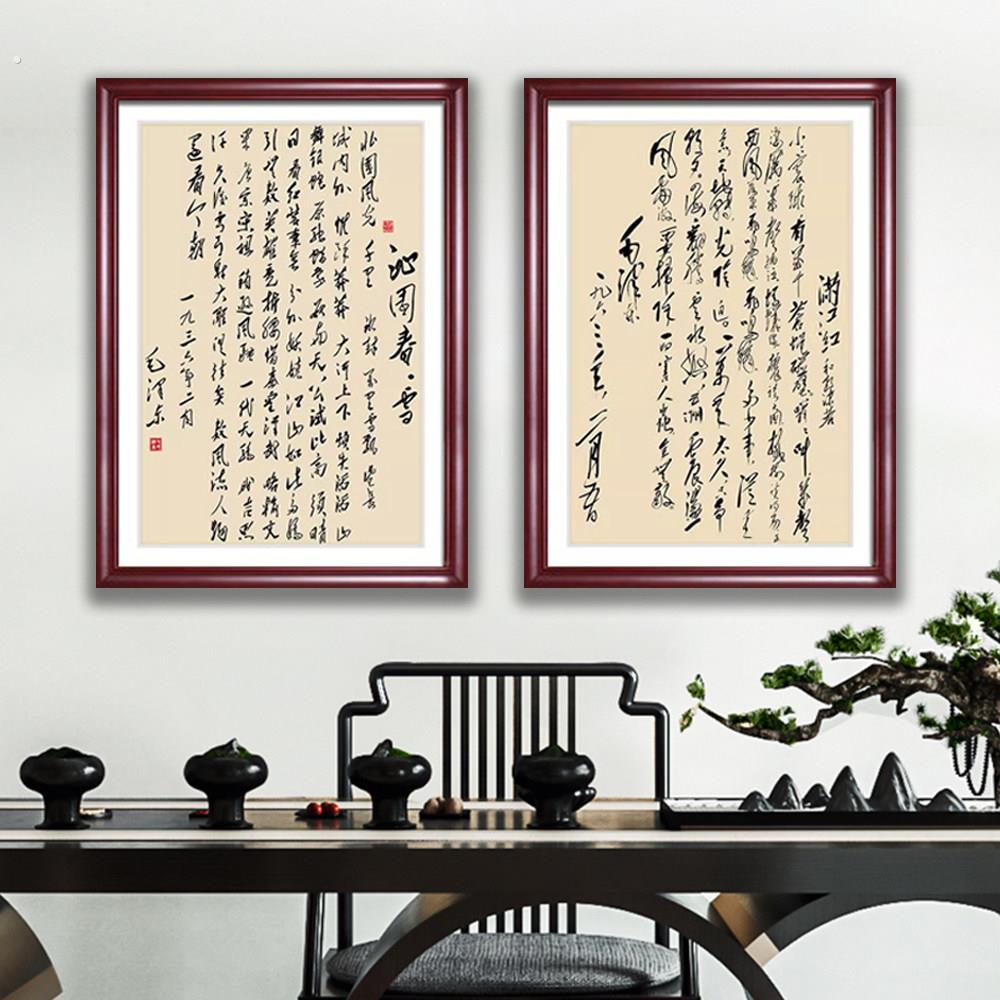 沁園春·雪
北國風光 千里冰封 万里雪飘 望长
城内外 惟馀莽莽 大河上下 顿失滔滔 山
舞银蛇 原驰蜡象 欲与天公试比高 须晴
日 看红装素裹 分外妖娆 江山如此多娇
引无数英雄竞折腰 惜秦皇汉武 略输文
采 唐宗宋祖 稍逊风骚 一代天骄 成吉思
汗 只识弯弓射大雕 俱往矣 数风流人物
还看今朝
一九三六年二月
毛泽东
满江红 和郭沫若
小小寰球 有几个苍蝇碰壁 嗡嗡叫 几声
凄厉 几声抽泣 蚂蚁缘槐夸大国 蚍蜉撼树谈何易 正
西风落叶下长安 飞鸣镝 多少事 从来
急 天地转 光阴迫 一万年太久 只争
朝夕 四海翻腾云水怒 五洲震荡
风雷激 要扫除一切害人虫 全无敌
毛泽东
一九六三年一月